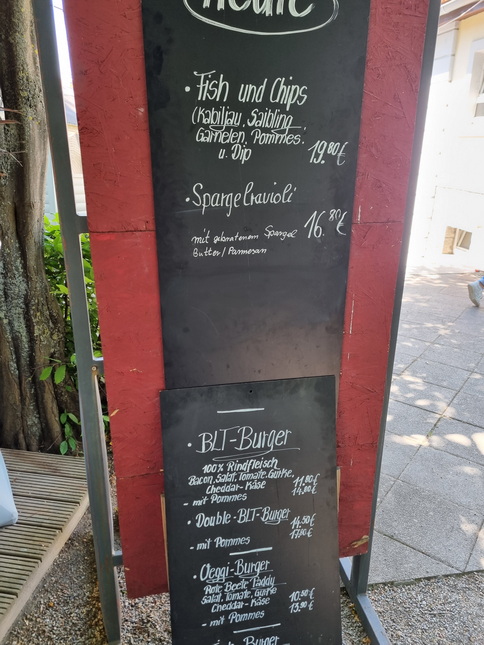 heute
• Fish und Chips
(Kabiljau, Saibling
Garnelen, Pommes.
u. Dip 19.80€
• Spargelravioli
16.80€
mit gebratenem Spargel
Butter/Parmesan
• BLT-Burger
100% Rindfleisch
Bacon, Salat, Tomate, Gurke, 11.80€
Cheddar-Käse 14.80€
- mit Pommes
• Double-BLT-Burger 14.50€
- mit Pommes
• Veggi-Burger
Rote Beete Paddy
Salat, Tomate, Gurke 10.50€
Cheddar-Käse 13.90€
- mit Pommes
Burger